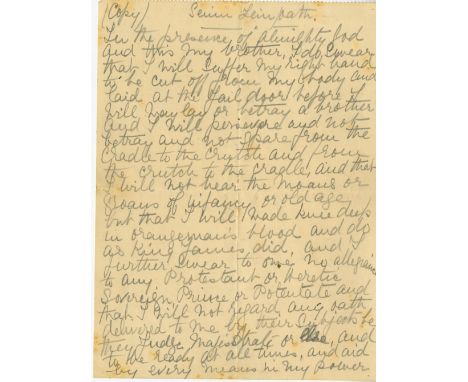 (Copy) Seinn Fein, oath.
In the presence of Almighty God
and this my brother, I do, swear
that I will suffer my right hand
to be cut off from my body and
laid at the jail door before I
will way lay or betray a brother
and I will persevere and not
betray and not spare from the
cradle to the crutch and from
the crutch to the cradle, and that
I will not hear the moans or
groans of infancy or old age
but that I will wade knee deep
in orangeman's blood and do
as King James, did, and I
further swear to owe no allegiance
to any Protestant or heretic
Sovereign Prince or Potentate and
that I will not regard any oath
delivered to me by their subjects be
they Judge Magistrate or else, and
to the ready at all times, and aid
by every means in my power